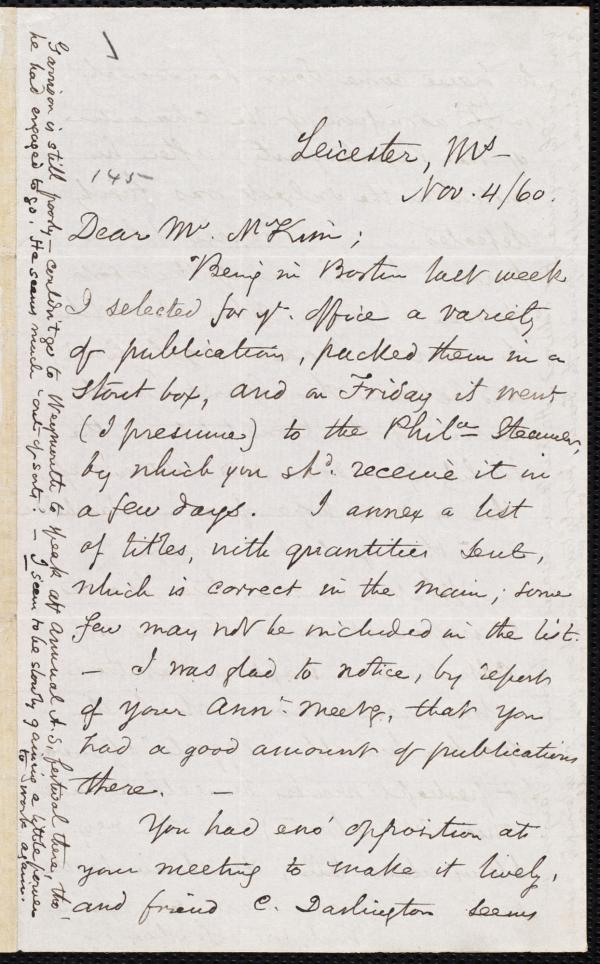 145
Leicester, Ms
Nov. 4/60.
Dear Mr. McKim;
Being in Boston last week
I selected for yr. office a variety
of publications, packed them in a
stout box, and on Friday it went
(I presume) to the Phila Steamer,
by which you shd. receive it in
a few days. I annex a list
of titles, with quantities sent,
which is correct in the main; some
few may not be included in the list.
— I was glad to notice, by report
of your Annl. Meetg, that you
had a good amount of publications
there. —
You had eno' opposition at
your meeting to make it lively,
and friend C. Darlington seems
Garrison is still poorly — couldn't go to Weymouth to speak at annual A.S. festival there, tho'
he had engaged to go. He seems much "out of sorts". — I seem to be slowly gaining a little power
to work again.